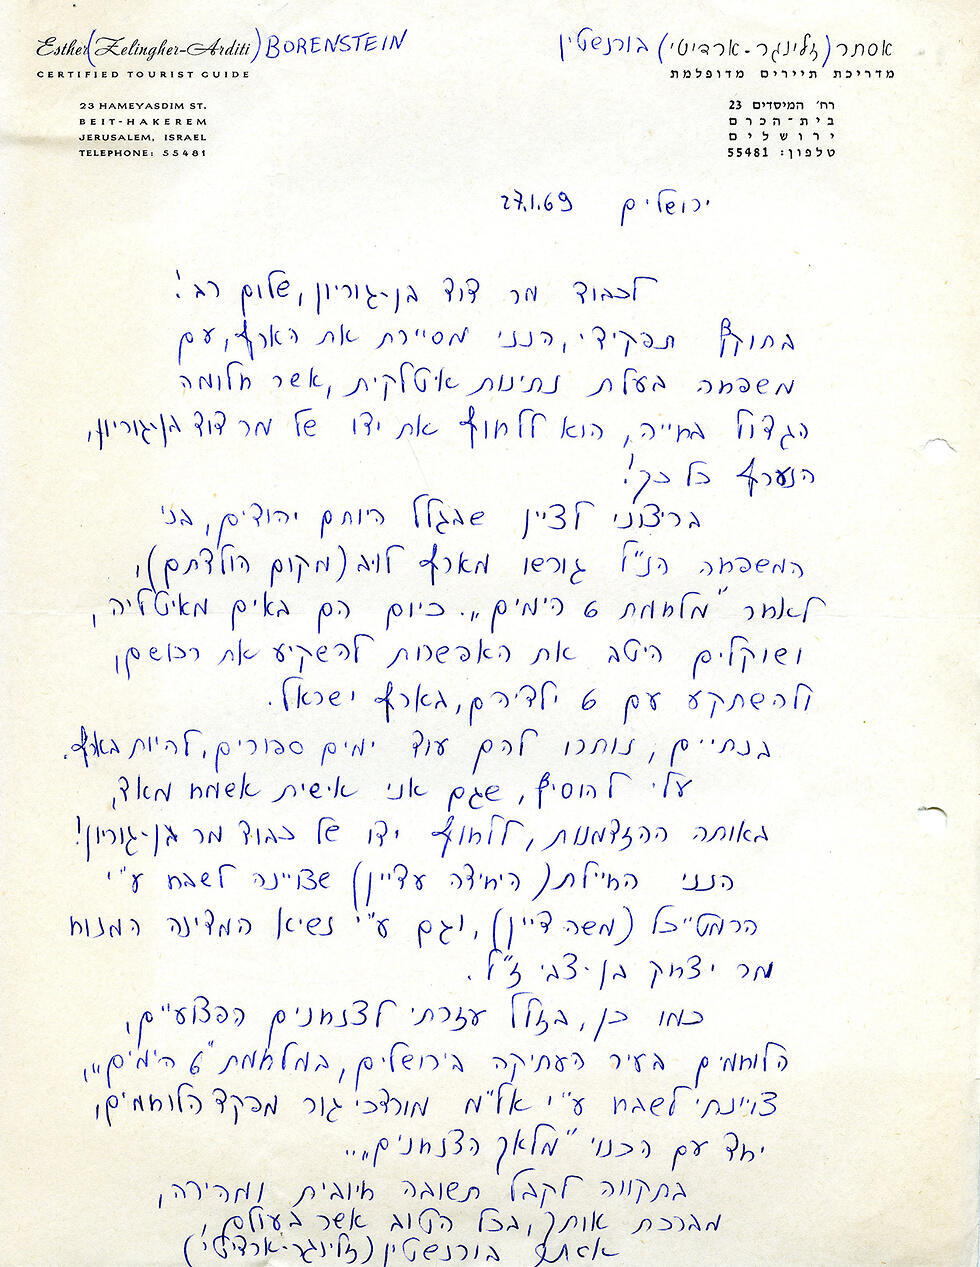 Esther (Zelingher-Arditi) BORENSTEIN
CERTIFIED TOURIST GUIDE
23 HAMEYASDIM ST.
BEIT-HAKEREM
JERUSALEM, ISRAEL
TELEPHONE: 55481
אסתר (זלינגר-ארדיטי) בורנשטין
מדריכת תיירים מדופלמת
רח' המיסדים 23
בית-הכרם
ירושלים
טלפון: 55481
ירושלים 27.1.69
לכבוד מר דוד בן-גוריון, שלום רב!
בתוקף תפקידי, הנני מסיירת את הארץ, עם
משפחה בעלת נתינות איטלקית, אשר חלומה
הגדול בחייה, הוא ללחוץ את ידו של מר דוד בן-גוריון,
הנערץ כל כך!
ברצוני לציין שבגלל היותם יהודים, בני
המשפחה הנ"ל גורשו מארץ לוב (מקום הולדתם),
לאחר "מלחמת 6 הימים". כיום הם באים מאיטליה,
ושוקלים היטב את האפשרות להשקיע את רכושם,
ולהשתקע עם 6 ילדיהם, בארץ ישראל.
בנתיים, נותרו להם עוד ימים ספורים, להיות בארץ.
עלי להוסיף, שגם אני אישית אשמח מאד,
באותה ההזדמנות, ללחוץ ידו של כבוד מר בן-גוריון!
הנני החיילת (היחידה עדיין) שצויינה לשבח ע"י
הרמטי"כל (משה דיין), וגם ע"י נשיא המדינה המנוח
מר יצחק בן-צבי ז"ל.
כמו כן, בגלל עזרתי לצנחנים הפצועים,
הלוחמים בעיר העתיקה בירושלים, במלחמת "6 הימים",
צויינתי לשבח ע"י אל"מ מורדכי גור מפקד הלוחמים,
יחד עם הכנוי "מלאך הצנחנים".
בתקווה לקבל תשובה חיובית ומהירה,
מברכת אותך, בכל הטוב אשר בעולם,
אסתר בורנשטין (זלינגר-ארדיטי)